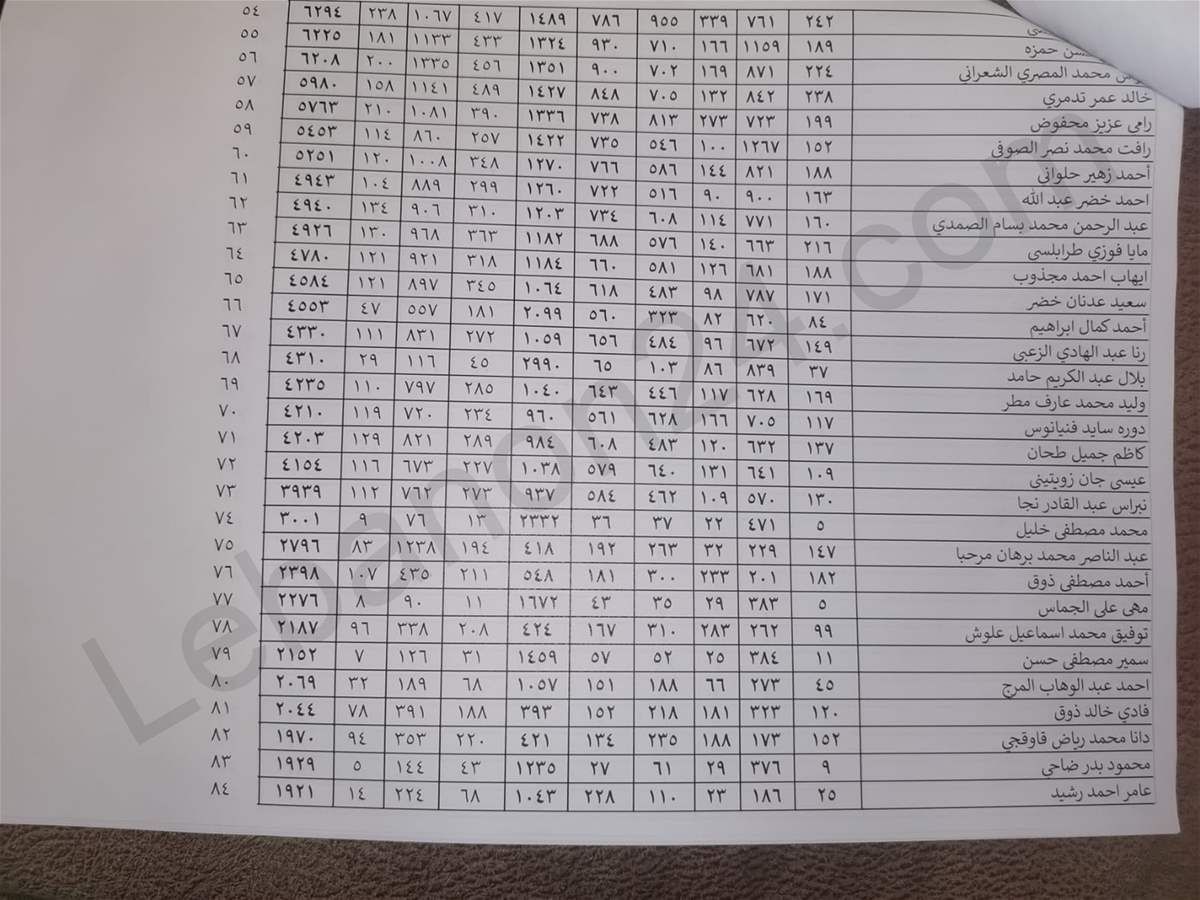 ٢٤٢ ٧٦١ ٣٣٩ ٩٥٥ ٧٨٦ ١٤٨٩ ٤١٧ ١٠٦٧ ٢٣٨ ٦٢٩٤ ٥٤
حمزه ١٨٩ ١١٥٩ ١٦٦ ٧١٠ ٩٣٠ ١٣٢٤ ٤٣٣ ١١٣٣ ١٨١ ٦٢٢٥ ٥٥
محمد المصري الشعرانى ٢٢٤ ٨٧١ ١٦٩ ٧٠٢ ٩٠٠ ١٣٥١ ٤٥٦ ١٣٣٥ ٢٠٠ ٦٢٠٨ ٥٦
خالد عمر تدمري ٢٣٨ ٨٤٢ ١٣٢ ٧٠٥ ٨٤٨ ١٤٢٧ ٤٨٩ ١١٤١ ١٥٨ ٥٩٨٠ ٥٧
رامى عزيز محفوض ١٩٩ ٧٢٣ ٢٧٣ ٨١٣ ٧٣٨ ١٣٣٦ ٣٩٠ ١٠٨١ ٢١٠ ٥٧٦٣ ٥٨
رافت محمد نصر الصوفى ١٥٢ ١٢٦٧ ١٠٠ ٥٤٦ ٧٣٥ ١٤٢٢ ٢٥٧ ٨٦٠ ١١٤ ٥٤٥٣ ٥٩
أحمد زهير حلوانى ١٨٨ ٨٢١ ١٤٤ ٥٨٦ ٧٦٦ ١٢٧٠ ٣٤٨ ١٠٠٨ ١٢٠ ٥٢٥١ ٦٠
احمد خضر عبد الله ١٦٣ ٩٠٠ ٩٠ ٥١٦ ٧٢٢ ١٢٦٠ ٢٩٩ ٨٨٩ ١٠٤ ٤٩٤٣ ٦١
عبد الرحمن محمد بسام الصمدي ١٦٠ ٧٧١ ١١٤ ٦٠٨ ٧٣٤ ١٢٠٣ ٣١٠ ٩٠٦ ١٣٤ ٤٩٤٠ ٦٢
مايا فوزي طرابلسى ٢١٦ ٦٦٣ ١٤٠ ٥٧٦ ٦٨٨ ١١٨٢ ٣٦٣ ٩٦٨ ١٣٠ ٤٩٢٦ ٦٣
ايهاب احمد مجذوب ١٨٨ ٦٨١ ١٢٦ ٥٨١ ٦٦٠ ١١٨٤ ٣١٨ ٩٢١ ١٢١ ٤٧٨٠ ٦٤
سعيد عدنان خضر ١٧١ ٧٨٧ ٩٨ ٤٨٣ ٦١٨ ١٠٦٤ ٣٤٥ ٨٩٧ ١٢١ ٤٥٨٤ ٦٥
أحمد كمال ابراهيم ٨٤ ٦٢٠ ٨٢ ٣٢٣ ٥٦٠ ٢٠٩٩ ١٨١ ٥٥٧ ٤٧ ٤٥٥٣ ٦٦
رنا عبد الهادي الزعبى ١٤٩ ٦٧٢ ٩٦ ٤٨٤ ٦٥٦ ١٠٥٩ ٢٧٢ ٨٣١ ١١١ ٤٣٣٠ ٦٧
بلال عبد الكريم حامد ٣٧ ٨٣٩ ٨٦ ١٠٣ ٦٥ ٢٩٩٠ ٤٥ ١١٦ ٢٩ ٤٣١٠ ٦٨
وليد محمد عارف مطر ١٦٩ ٦٢٨ ١١٧ ٤٤٦ ٦٤٣ ١٠٤٠ ٢٨٥ ٧٩٧ ١١٠ ٤٢٣٥ ٦٩
دوره سايد فنيانوس ١١٧ ٧٠٥ ١٦٦ ٦٢٨ ٥٦١ ٩٦٠ ٢٣٤ ٧٢٠ ١١٩ ٤٢١٠ ٧٠
كاظم جميل طحان ١٣٧ ٦٣٢ ١٢٠ ٤٨٣ ٦٠٨ ٩٨٤ ٢٨٩ ٨٢١ ١٢٩ ٤٢٠٣ ٧١
عيسى جان زويتينى ١٠٩ ٦٤١ ١٣١ ٦٤٠ ٥٧٩ ١٠٣٨ ٢٢٧ ٦٧٣ ١١٦ ٤١٥٤ ٧٢
نبراس عبد القادر نجا ١٣٠ ٥٧٠ ١٠٩ ٤٦٢ ٥٨٤ ٩٣٧ ٢٧٣ ٧٦٢ ١١٢ ٣٩٣٩ ٧٣
محمد مصطفى خليل ٥ ٤٧١ ٢٢ ٣٧ ٣٦ ٢٣٣٢ ١٣ ٧٦ ٩ ٣٠٠١ ٧٤
عبد الناصر محمد برهان مرحبا ١٤٧ ٢٢٩ ٣٢ ٢٦٣ ١٩٢ ٤١٨ ١٩٤ ١٢٣٨ ٨٣ ٢٧٩٦ ٧٥
أحمد مصطفى ذوق ١٨٢ ٢٠١ ٢٣٣ ٣٠٠ ١٨١ ٥٤٨ ٢١١ ٤٣٥ ١٠٧ ٢٣٩٨ ٧٦
مهى على الجماس ٥ ٣٨٣ ٢٩ ٣٥ ٤٣ ١٦٧٢ ١١ ٩٠ ٨ ٢٢٧٦ ٧٧
توفيق محمد اسماعيل علوش ٩٩ ٢٦٢ ٢٨٣ ٣١٠ ١٦٧ ٤٢٤ ٢٠٨ ٣٣٨ ٩٦ ٢١٨٧ ٧٨
سمير مصطفى حسن ١١ ٣٨٤ ٢٥ ٥٢ ٥٧ ١٤٥٩ ٣١ ١٢٦ ٧ ٢١٥٢ ٧٩
احمد عبد الوهاب المرج ٤٥ ٢٧٣ ٦٦ ١٨٨ ١٥١ ١٠٥٧ ٦٨ ١٨٩ ٣٢ ٢٠٦٩ ٨٠
فادي خالد ذوق ١٢٠ ٣٢٣ ١٨١ ٢١٨ ١٥٢ ٣٩٣ ١٨٨ ٣٩١ ٧٨ ٢٠٤٤ ٨١
دانا محمد رياض قاوقجي ١٥٢ ١٧٣ ١٨٨ ٢٣٥ ١٣٤ ٤٢١ ٢٢٠ ٣٥٣ ٩٤ ١٩٧٠ ٨٢
محمود بدر ضاحى ٩ ٣٧٦ ٢٩ ٦١ ٢٧ ١٢٣٥ ٤٣ ١٤٤ ٥ ١٩٢٩ ٨٣
عامر احمد رشيد ٢٥ ١٨٦ ٢٣ ١١٠ ٢٢٨ ١٠٤٣ ٦٨ ٢٢٤ ١٤ ١٩٢١ ٨٤
Lebanon24.com